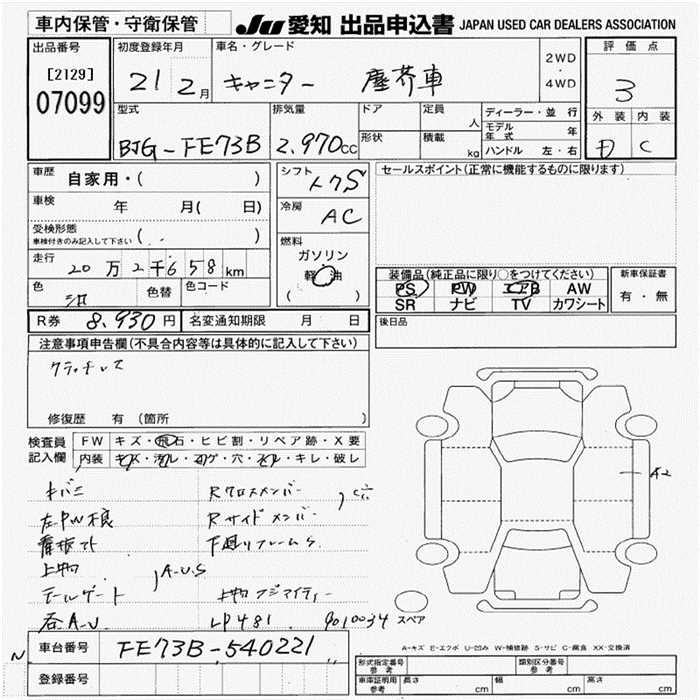 車内保管・守衛保管
JU 愛知 出品申込書 JAPAN USED CAR DEALERS ASSOCIATION
出品番号
[2129]
07099
初度登録年月
21 2月
車名・グレード
キャンター 塵芥車
2WD
・
4WD
評価点
3
外装 内装
D C
型式
BJG-FE73B
排気量
2.970cc
ドア
形状
定員
人
積載
kg
ディーラー・並行
モデル年式 年
ハンドル 左・右
車歴
自家用・( )
車検
年 月( 日)
受検形態
車検付きのみ記入して下さい ( )
走行
20万2千658km
色
シロ
色替
色コード
シフト
冷房
AC
燃料
ガソリン
軽油
( )
セールスポイント(正常に機能するものに限ります)
装備品(純正品に限り○をつけてください)
PS PW エアB AW
SR ナビ TV カワシート
新車保証書
有・無
R券 8,930円
名変通知期限 月 日
後日品
注意事項申告欄(不具合内容等は具体的に記入して下さい)
クラッチレス
修復歴 有(箇所 )
検査員
記入欄
FW キズ・飛石・ヒビ割・リペア跡・X要
内装 キズ・汚レ・コゲ・穴・スレ・キレ・破レ
サビ
Rクロスメンバー
左PW不良
Rサイドメンバー
看板アト
下廻りフレームS
上物
A・U・S
テールゲート
上物フジマイティー
各A.U
LP481 9010034
A2
スペア
A-キズ E-エクボ U-凹み W-補修跡 S-サビ C-腐食 XX-交換済
車台番号
FE73B-540221
登録番号
形式指定番号
参考
類別区分番号
参考
車庫証明用
参考
長さ cm
幅 cm
高さ cm